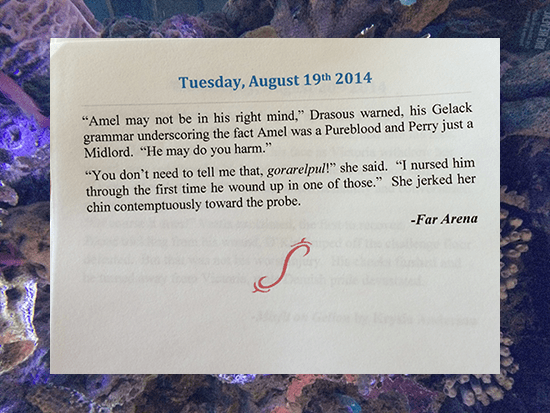 Tuesday, August 19th 2014
“Amel may not be in his right mind,” Drasous warned, his Gelack
grammar underscoring the fact Amel was a Pureblood and Perry just a
Midlord.  “He may do you harm.”
“You don’t need to tell me that, gorarelpul!” she said.  “I nursed him
through the first time he wound up in one of those.”  She jerked her
chin contemptuously toward the probe.
-Far Arena